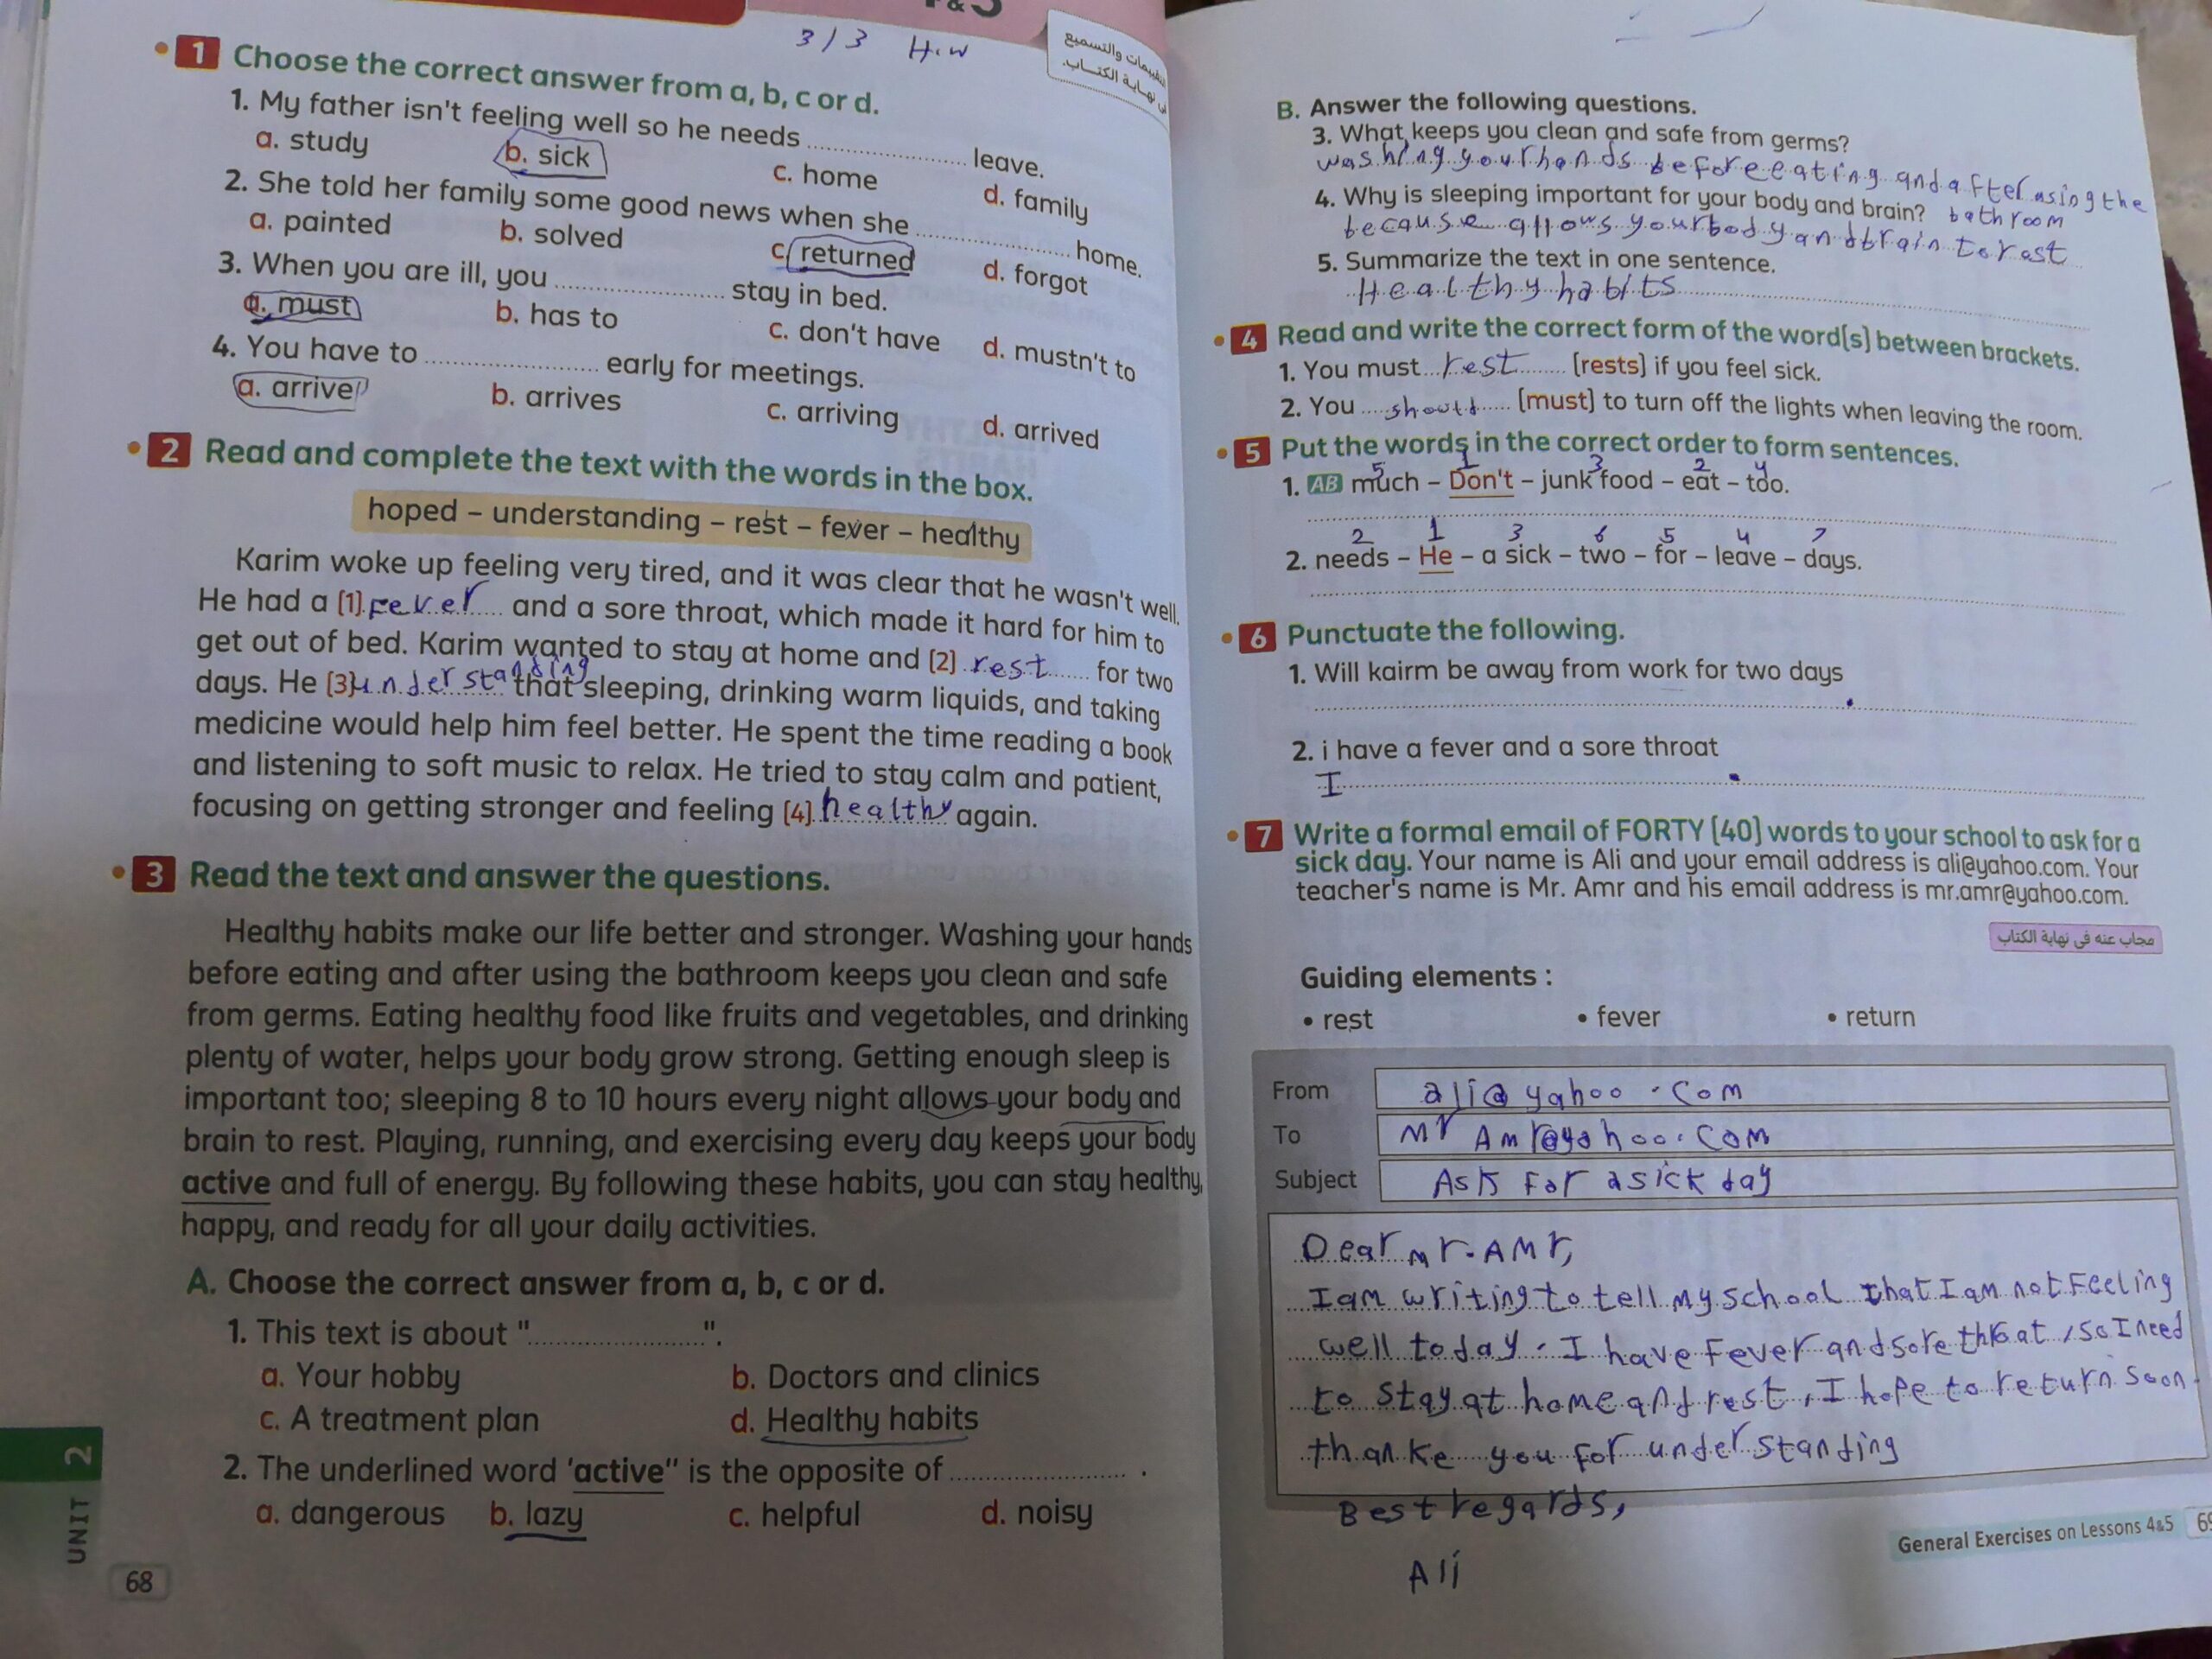 & 5
3/3 H.W
التقييمات والتسميع
فى نهاية الكتاب.
1 Choose the correct answer from a, b, c or d.
1. My father isn't feeling well so he needs .................... leave.
a. study b. sick c. home d. family
2. She told her family some good news when she .................... home.
a. painted b. solved c. returned d. forgot
3. When you are ill, you .................... stay in bed.
a. must b. has to c. don't have d. mustn't to
4. You have to .................... early for meetings.
a. arrive b. arrives c. arriving d. arrived
2 Read and complete the text with the words in the box.
hoped – understanding – rest – fever – healthy
Karim woke up feeling very tired, and it was clear that he wasn't well.
He had a (1) fever and a sore throat, which made it hard for him to
get out of bed. Karim wanted to stay at home and (2) rest for two
days. He (3) understanding that sleeping, drinking warm liquids, and taking
medicine would help him feel better. He spent the time reading a book
and listening to soft music to relax. He tried to stay calm and patient,
focusing on getting stronger and feeling (4) healthy again.
3 Read the text and answer the questions.
Healthy habits make our life better and stronger. Washing your hands
before eating and after using the bathroom keeps you clean and safe
from germs. Eating healthy food like fruits and vegetables, and drinking
plenty of water, helps your body grow strong. Getting enough sleep is
important too; sleeping 8 to 10 hours every night allows your body and
brain to rest. Playing, running, and exercising every day keeps your body
active and full of energy. By following these habits, you can stay healthy,
happy, and ready for all your daily activities.
A. Choose the correct answer from a, b, c or d.
1. This text is about "....................".
a. Your hobby b. Doctors and clinics
c. A treatment plan d. Healthy habits
2. The underlined word 'active" is the opposite of .................... .
a. dangerous b. lazy c. helpful d. noisy
UNIT 2
68
B. Answer the following questions.
3. What keeps you clean and safe from germs?
washing your hands before eating and after using the
bathroom
4. Why is sleeping important for your body and brain?
because allows your body and brain to rest
5. Summarize the text in one sentence.
Healthy habits
4 Read and write the correct form of the word(s) between brackets.
1. You must rest (rests) if you feel sick.
2. You should (must) to turn off the lights when leaving the room.
5 Put the words in the correct order to form sentences.
5 1 3 2 4
1. AB much – Don't – junk food – eat – too.
2 1 3 6 5 4 7
2. needs – He – a sick – two – for – leave – days.
6 Punctuate the following.
1. Will kairm be away from work for two days
.
2. i have a fever and a sore throat
I .
7 Write a formal email of FORTY (40) words to your school to ask for a
sick day. Your name is Ali and your email address is ali@yahoo.com. Your
teacher's name is Mr. Amr and his email address is mr.amr@yahoo.com.
مجاب عنه فى نهاية الكتاب
Guiding elements :
• rest • fever • return
From ali@yahoo.com
To Mr Amr@yahoo.com
Subject Ask for a sick day
Dear Mr. Amr,
I am writing to tell my school that I am not Feeling
well today. I have Fever and sore throat, so I need
to stay at home and rest, I hope to return soon
thanke you for understanding
Best regards,
Ali
General Exercises on Lessons 4&5 69